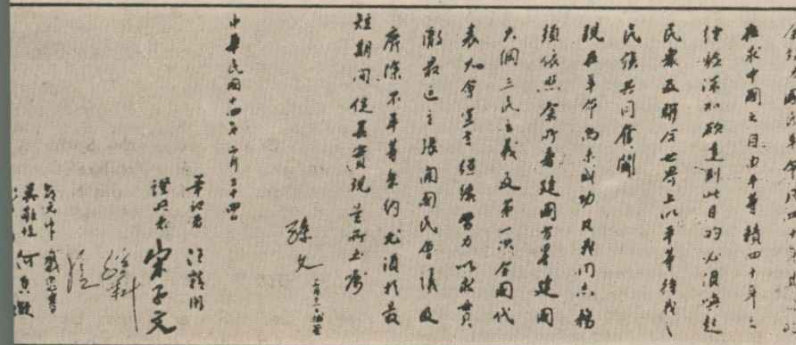 余致力國民革命凡四十年其目的
在求中國之自由平等積四十年之
經驗深知欲達到此目的必須喚起
民眾及聯合世界上以平等待我之
民族共同奮鬪
現在革命尚未成功凡我同志務
須依照余所著建國方畧建國
大綱三民主義及第一次全國代
表大會宣言繼續努力以求貫
徹最近主張開國民會議及
廢除不平等條約尤須於最
短期間促其實現是所至囑
孫文 二月二十四日補簽
中華民國十四年二月二十四日
筆記者 汪精衛
證明者 宋子文
孫科
邵元冲 戴恩賽
吳敬恆 何香凝